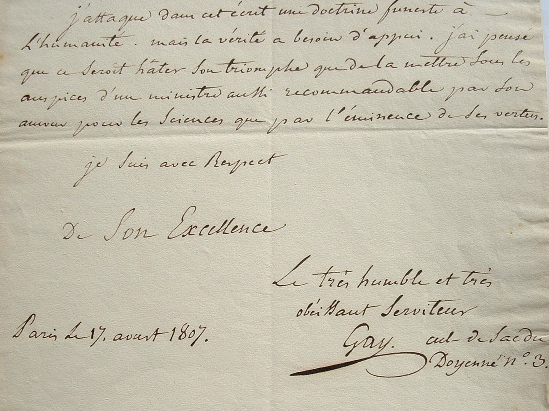 j'attaque dans cet écrit une doctrine funeste à
L'humanité. mais la vérité a besoin d'appui. j'ai pensé
que ce seroit hâter son triomphe que de la mettre sous les
auspices d'un ministre aussi recommandable par son
amour pour les Sciences que par l'éminence de ses vertus.
je suis avec Respect
De Son Excellence
Le très humble et très
obéissant Serviteur
Gay. cul-de-Sac du
Doyenné n.° 3.
Paris Le 17. aoust 1807.